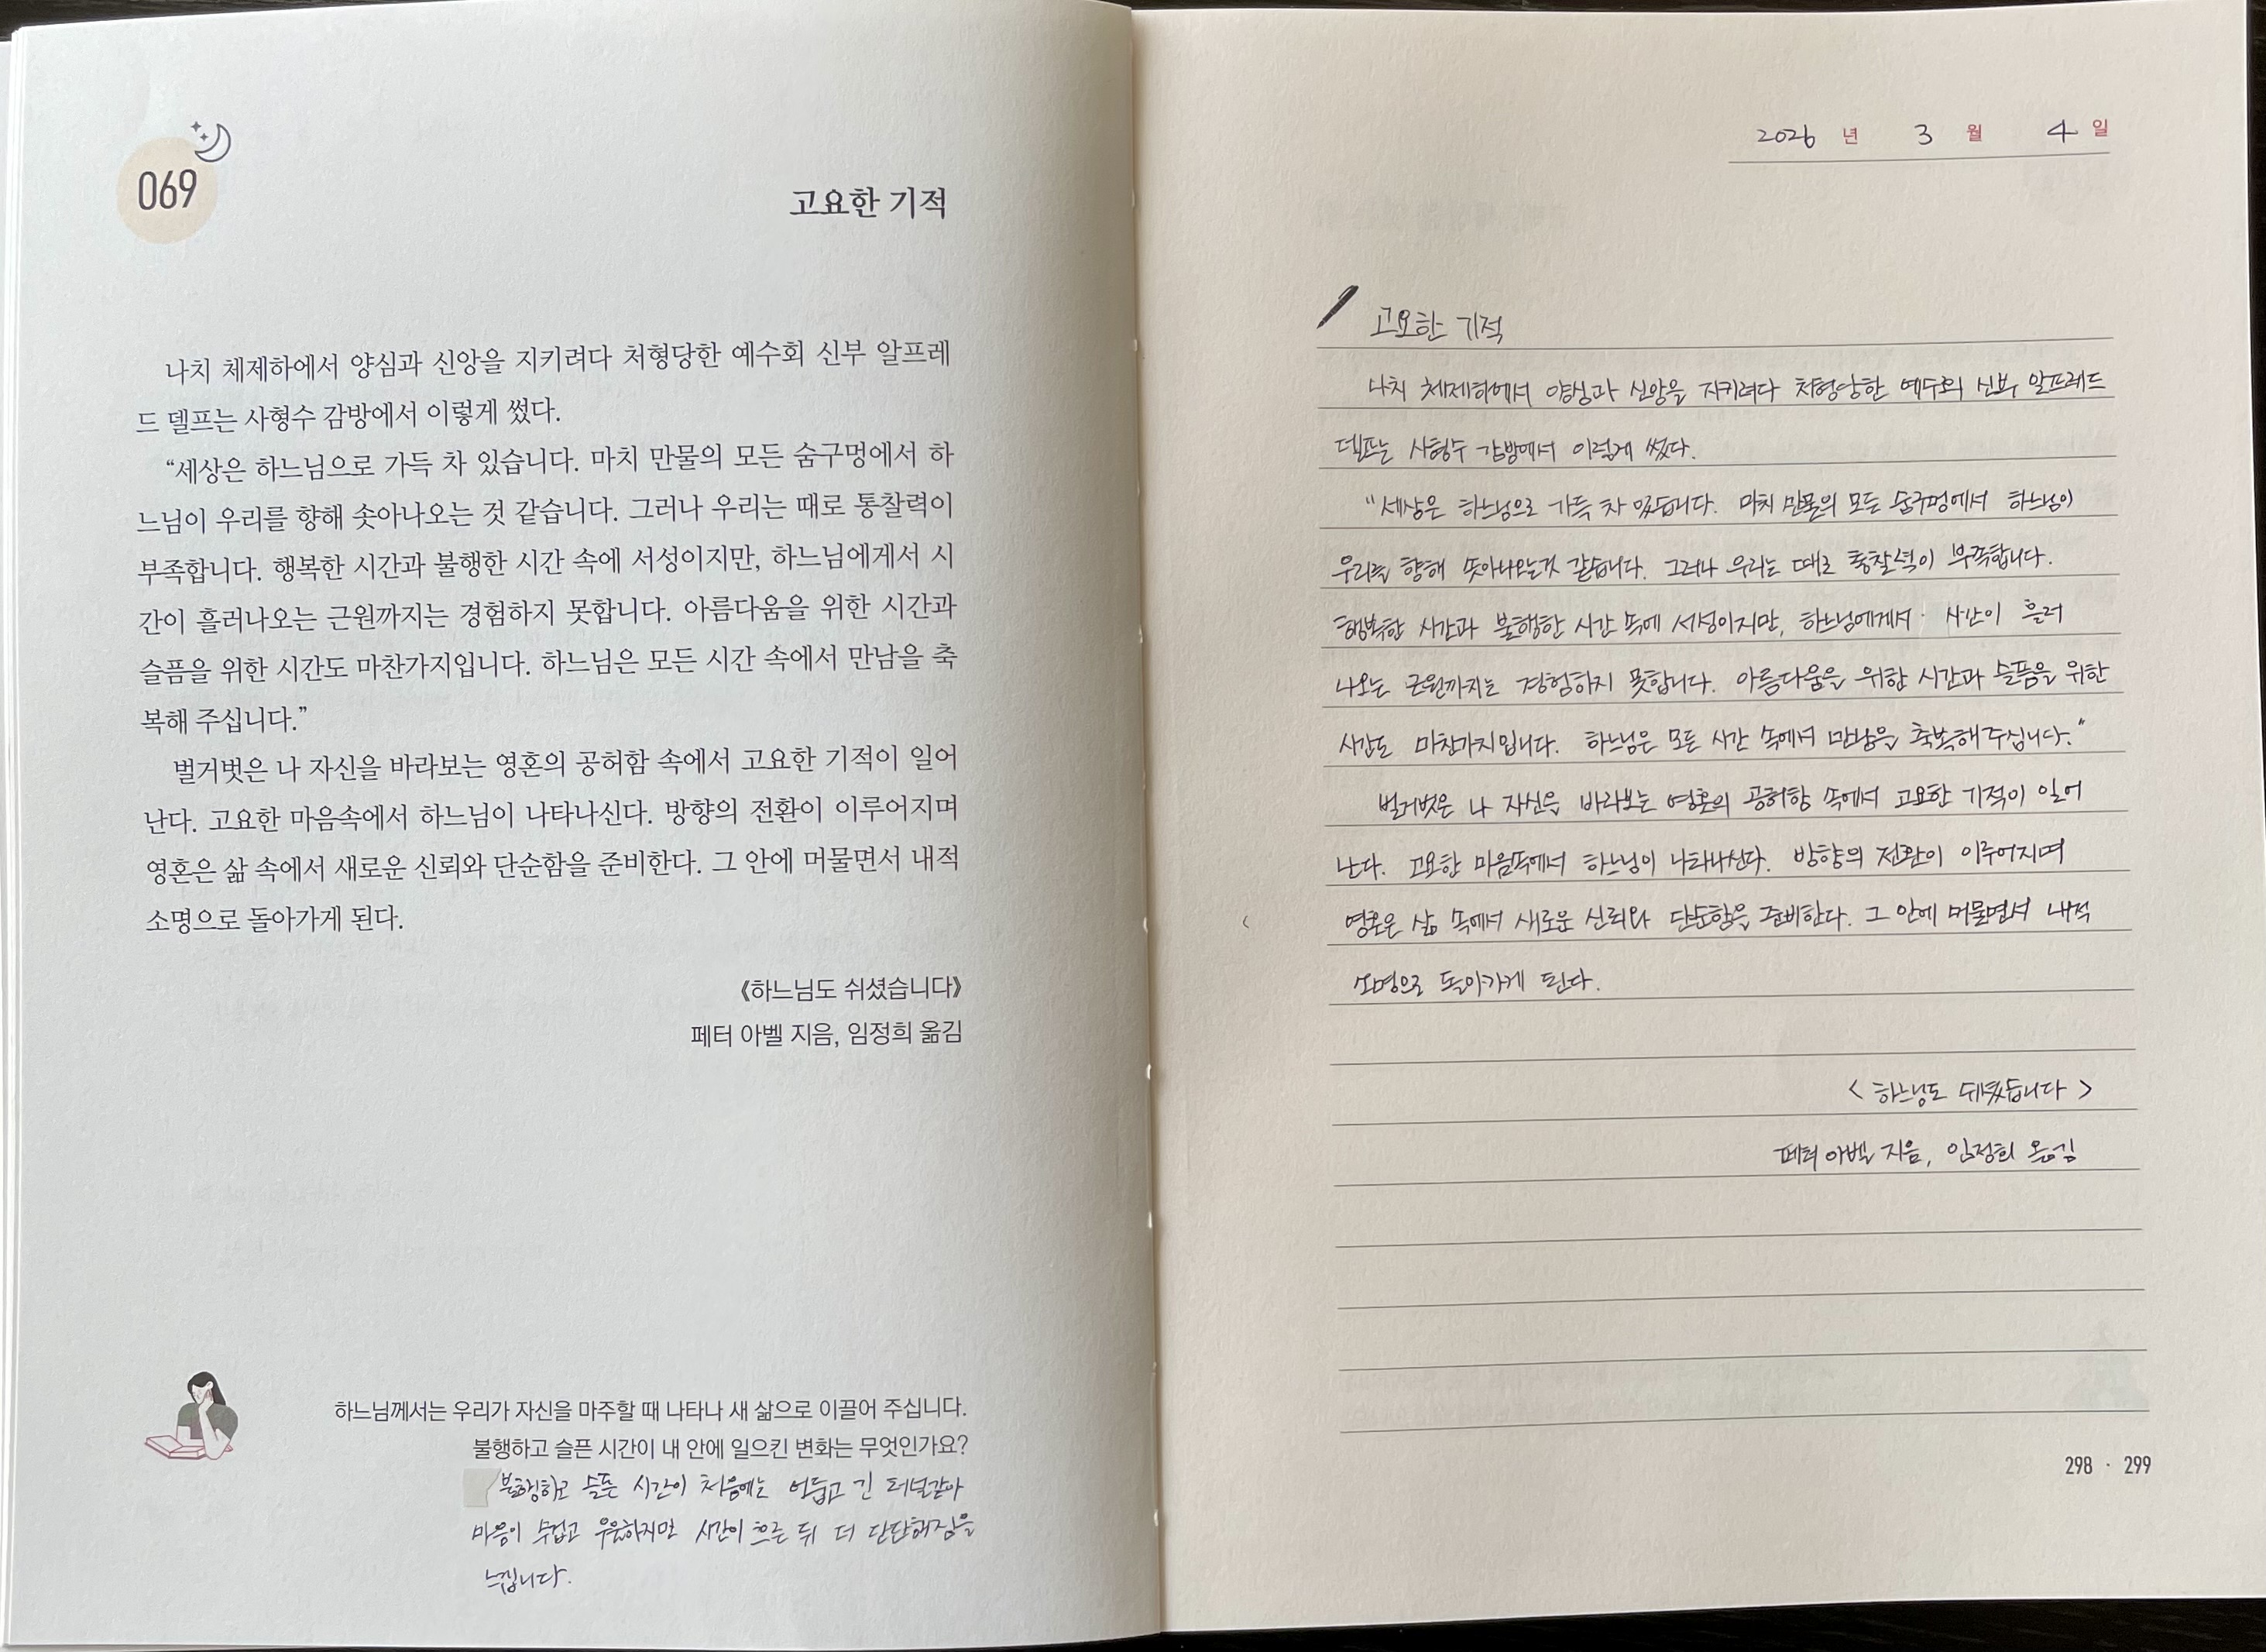 069
고요한 기적
나치 체제하에서 양심과 신앙을 지키려다 처형당한 예수회 신부 알프레
드 델프는 사형수 감방에서 이렇게 썼다.
“세상은 하느님으로 가득 차 있습니다. 마치 만물의 모든 숨구멍에서 하
느님이 우리를 향해 솟아나오는 것 같습니다. 그러나 우리는 때로 통찰력이
부족합니다. 행복한 시간과 불행한 시간 속에 서성이지만, 하느님에게서 시
간이 흘러나오는 근원까지는 경험하지 못합니다. 아름다움을 위한 시간과
슬픔을 위한 시간도 마찬가지입니다. 하느님은 모든 시간 속에서 만남을 축
복해 주십니다.”
벌거벗은 나 자신을 바라보는 영혼의 공허함 속에서 고요한 기적이 일어
난다. 고요한 마음속에서 하느님이 나타나신다. 방향의 전환이 이루어지며
영혼은 삶 속에서 새로운 신뢰와 단순함을 준비한다. 그 안에 머물면서 내적
소명으로 돌아가게 된다.
《하느님도 쉬셨습니다》
페터 아벨 지음, 임정희 옮김
하느님께서는 우리가 자신을 마주할 때 나타나 새 삶으로 이끌어 주십니다.
불행하고 슬픈 시간이 내 안에 일으킨 변화는 무엇인가요?
불행하고 슬픈 시간이 처음에는 어둡고 긴 터널같아
마음이 무겁고 우울하지만 시간이 흐른 뒤 더 단단해짐을
느낍니다.
2026 년 3 월 4 일
고요한 기적
나치 체제하에서 양심과 신앙을 지키려다 처형당한 예수회 신부 알프레드
델프는 사형수 감방에서 이렇게 썼다.
"세상은 하느님으로 가득 차 있습니다. 마치 만물의 모든 숨구멍에서 하느님이
우리를 향해 솟아나오는것 같습니다. 그러나 우리는 때로 통찰력이 부족합니다.
행복한 시간과 불행한 시간 속에 서성이지만, 하느님에게서 시간이 흘러
나오는 근원까지는 경험하지 못합니다. 아름다움을 위한 시간과 슬픔을 위한
시간도 마찬가지입니다. 하느님은 모든 시간 속에서 만남을 축복해주십니다."
벌거벗은 나 자신을 바라보는 영혼의 공허함 속에서 고요한 기적이 일어
난다. 고요한 마음속에서 하느님이 나타나신다. 방향의 전환이 이루어지며
영혼은 삶 속에서 새로운 신뢰와 단순함을 준비한다. 그 안에 머물면서 내적
소명으로 돌아가게 된다.
< 하느님도 쉬셨습니다 >
페터 아벨 지음, 임정희 옮김
298 · 299